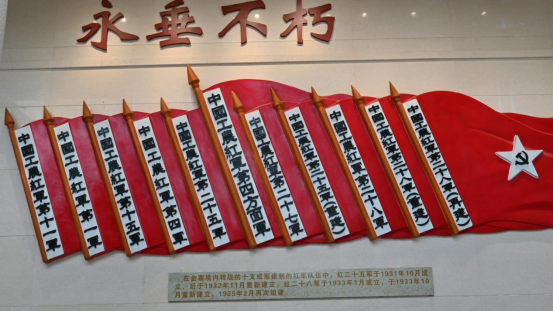 永垂不朽
中國工農紅軍第十一軍
中國工農紅軍第一軍
中國工農紅軍第十五軍
中國工農紅軍第四軍
中國工農紅軍第二十五軍
中國工農紅軍第四方面軍
中國工農紅軍第二十七軍
中國工農紅軍第二十五軍(重建)
中國工農紅軍第二十八軍
中國工農紅軍第二十八軍(重建)
中國工農紅軍第二十八軍(再建)
在金寨境内转战的十支成军建制的红军队伍中，红二十五军于1931年10月成
立，后于1932年11月重新建立。红二十八军于1933年1月成立，于1933年10
月重新建立，1935年2月再次组建。